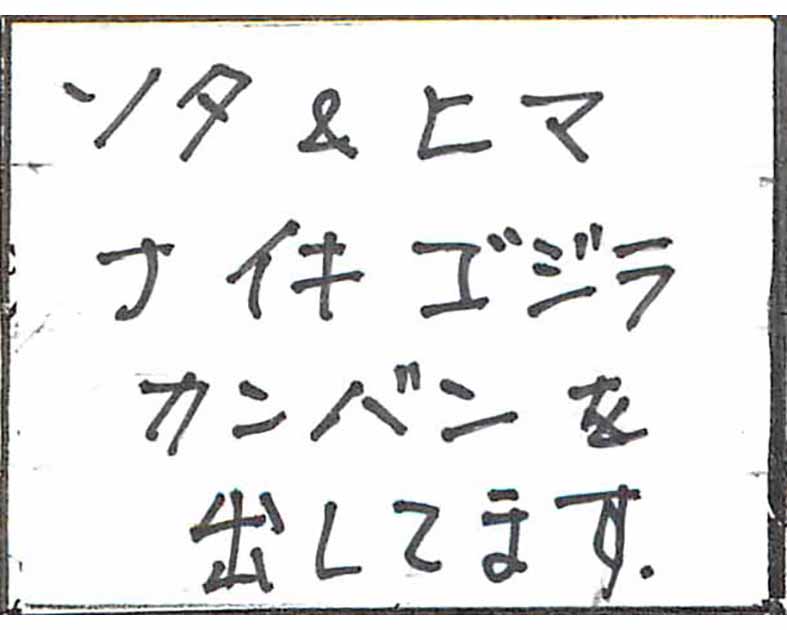 ソタ & ヒマ
ナイキ ゴジラ
カンバンを
出してます.